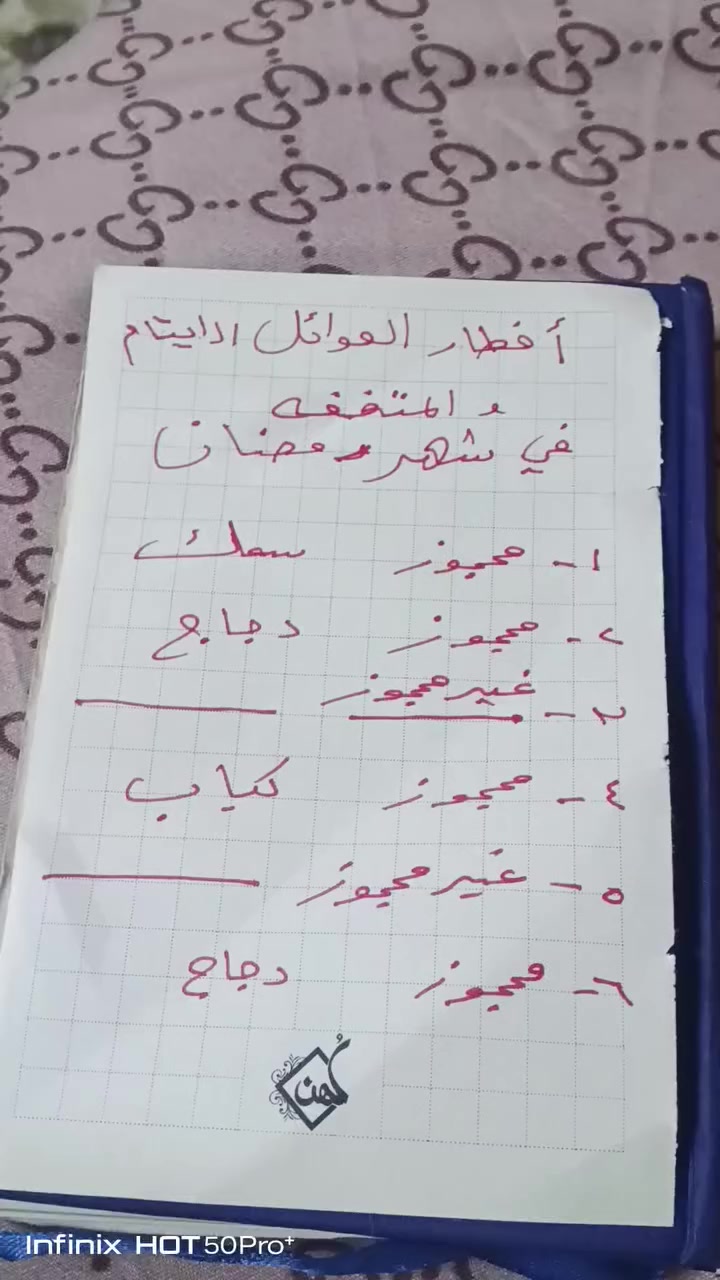 أفطار العوائل الايتام
و المتعففه
في شهر رمضان
١- محجوز سمك
٢- محجوز دجاج
٣- غير محجوز
٤- محجوز كباب
٥- غير محجوز
٦- محجوز دجاج
كُهن
Infinix HOT 50Pro+